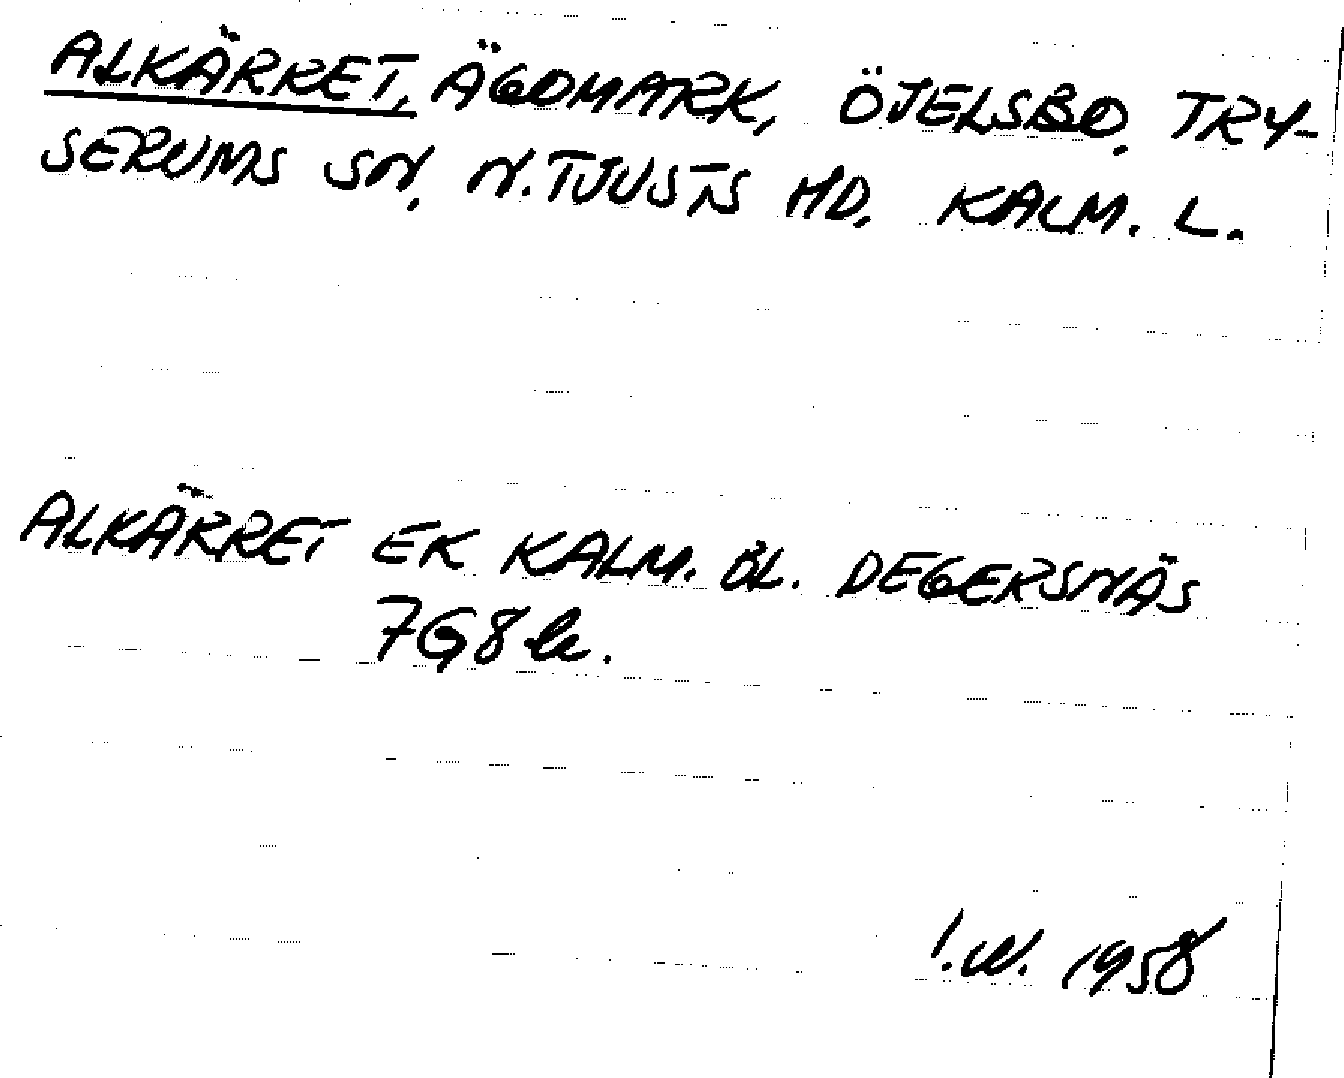 ALKÄRRET, ÄGOMARK, ÖJELSBO, TRY-
SERUMS SN, N. TJUSTS HD, KALM. L.
ALKÄRRET EK KALM. BL. DEGERSNÄS
7G8b.
I.W. 1958